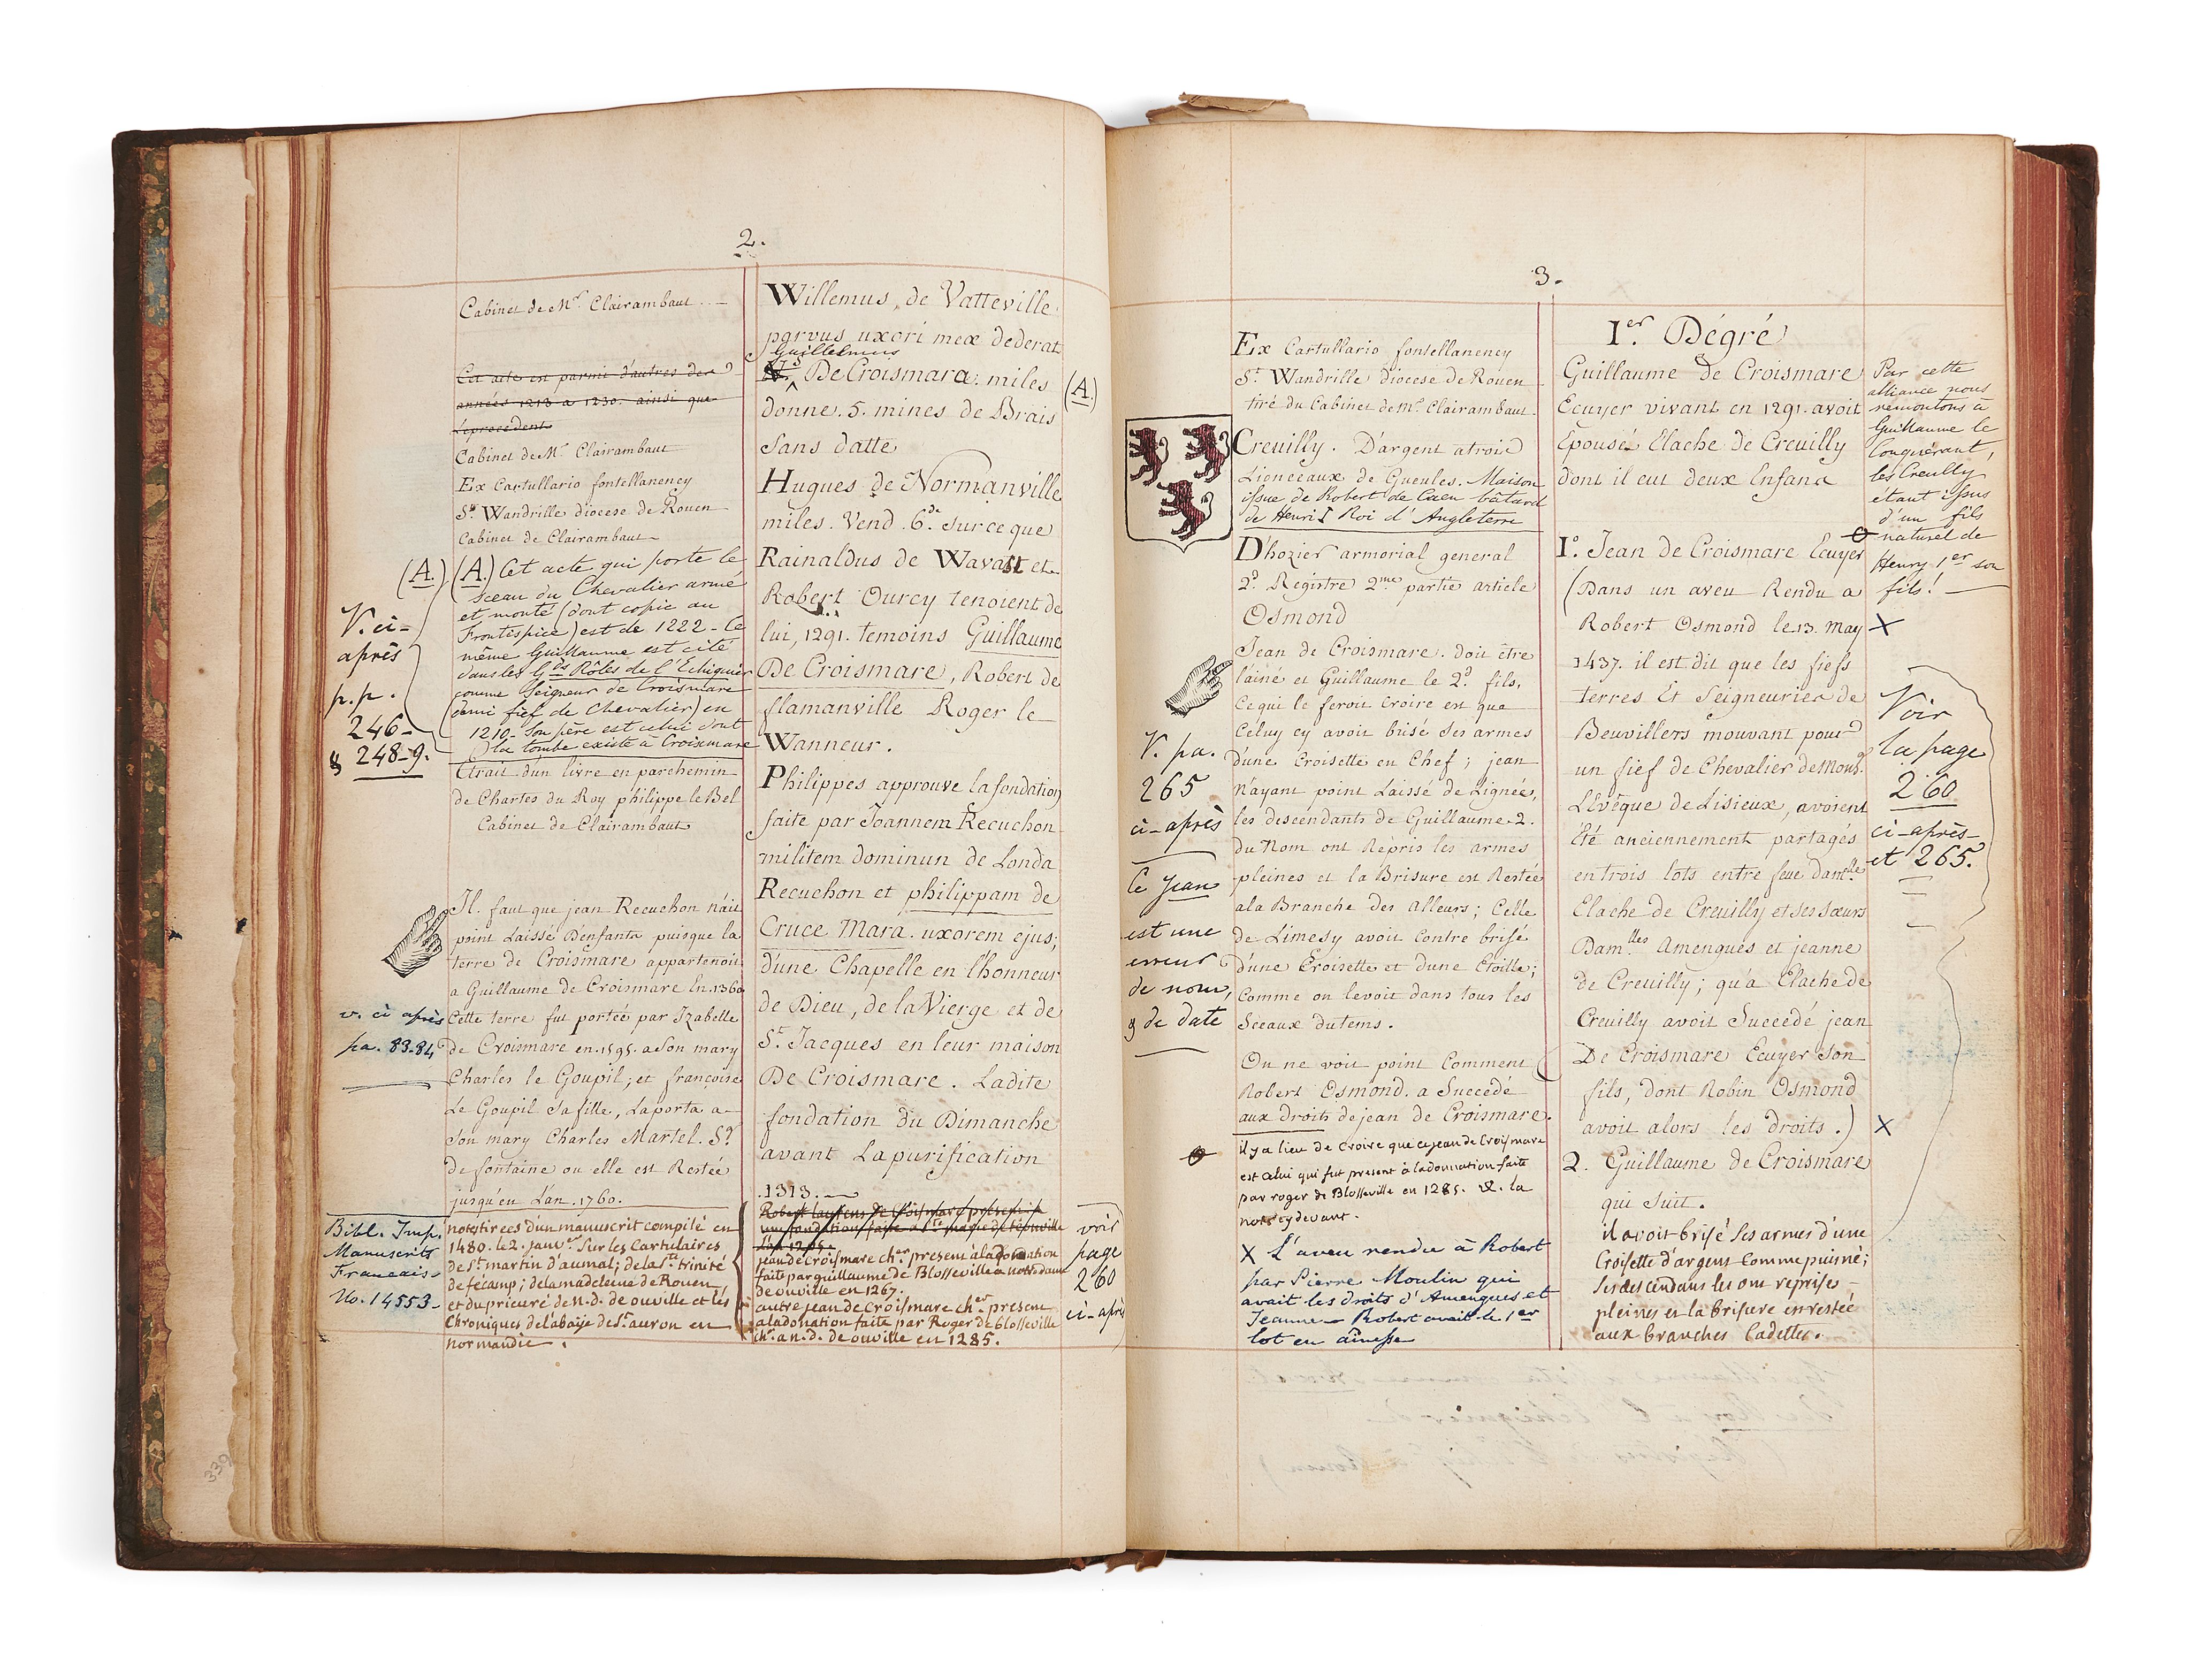 2.
Cabinet de Mr. Clairambaut
Cet acte est parmi d'autres des
années 1213 a 1230. ainsi que
Leprecedent
Cabinet de Mr Clairambaut
Ex Cartullario fontellanency
St. Wandrille diocese de Rouen
Cabinet de Clairambaut
(A.) (A.) Cet acte qui porte le
sceau du Chevalier armé
et monté (dont copie au
Frontespice) est de 1222 - Ce
même Guillaume est cité
dans les Gds Rôles de l'Echiquier
comme Seigneur de Croismare
(demi fief de Chevalier) en
1210 - Son père est celui dont
la tombe existe à Croismare
V. ci-
après
p.p.
246-
& 248-9.
Etrait d'un livre en parchemin
de Chartes du Roy philippe le Bel
Cabinet de Clairambaut
Il faut que jean Recuchon n'ait
point Laissé D'enfants puisque la
terre de Croismare appartenoit
a Guillaume de Croismare En 1360
Cette terre fut portée par Izabelle
de Croismare en 1595. a Son mary
Charles le Goupil; et françoise
Le Goupil Sa fille, Laporta a
Son mary Charles Martel. Sr.
de fontaine ou elle est Restée
jusqu'en L'an 1760.
v. ci après
pa. 83-84
Bibl. Imp.
Manuscrits
Francais
No. 14553-
notes tirees d'un manuscrit compilé en
1480. le 2. janver Sur les Cartulaires
de St martin d'aumal; de la ste trinité
de fécamp; de la madeleine de Rouen
et du prieuré de n.d. de ouville et les
Chroniques de l'abaije de St. auron en
normandie.
Willemus de Vatteville
parvus uxori meæ dederat
Guillelmus
De Croismara miles (A.)
donne 5. mines de Brais
Sans datte
Hugues de Normanville
miles. Vend 6.de sur ce que
Rainaldus de Wavast et
Robert Ourcy tenoient de
lui, 1291. temoins Guillaume
De Croismare, Robert de
flamanville Roger le
Wanneur.
Philippes approuve la fondation
faite par Joannem Recuchon
militem dominun de Londa
Recuchon et philippam de
Cruce Mara. uxorem ejus;
d'une Chapelle en l'honneur
de Dieu, de la Vierge et de
St. Jacques en leur maison
De Croismare. Ladite
fondation du Dimanche
avant La purification
1313.
jean de Croismare cher present à la donation
faite par guillaume de Blosseville a notre dame
de ouville en 1267.
autre jean de Croismare cher present
a la donation faite par Roger de Blosseville
chr. a n.d. de ouville en 1285.
voir
page
260
ci-après
3.
Ex Cartullario fontellanency
St. Wandrille diocese de Rouen
tiré du Cabinet de Mr. Clairambaut.
Creuilly. D'argent a trois
Lionceaux de Gueules. Maison
issue de Robert de Caen bâtard
de Henri I Roi d'Angleterre
D'hozier armorial general
2d. Registre 2me partie article
Osmond
Jean de Croismare. doit être
l'ainé et Guillaume le 2d. fils.
Ce qui le feroit croire est que
Celuy cy avoit brisé ses armes
d'une Croisette en Chef; jean
n'ayant point Laissé de Lignée,
les descendants de Guillaume 2.
du Nom ont Repris les armes
pleines et la Brisure est Restée
a la Branche des alleurs; Celle
de Limesy avoit Contre brisé
d'une Croisette et d'une Etoille;
Comme on le voit dans tous les
Sceaux du tems.
V. pa.
265
ci-après
Ce Jean
est une
erreur
de nom,
& de date
On ne voit point Comment
Robert Osmond a Succedé
aux droits de jean de Croismare.
il y a lieu de croire que ce jean de Croismare
est celui qui fut present à la donnation faite
par roger de Blosseville en 1285. &. la
note cy devant.
X L'aveu rendu à Robert
par Pierre Moulin qui
avait les droits d'Amengues et
Jeanne - Robert avait le 1er
lot en aînesse
Ier. Dégré
Guillaume de Croismare
Ecuyer vivant en 1291. avoit
Epousé Elache de Creuilly
dont il eut deux Enfans
1o. Jean de Croismare Ecuyer
(Dans un aveu Rendu a
Robert Osmond le 13. May X
1437. il est dit que les fiefs
terres Et Seigneuries de
Beuvillers mouvant pour
un fief de Chevalier de Monsr.
L'Evêque de Lisieux, avoient
été anciennement partagés
en trois lots entre feue damlle
Elache de Creuilly et ses sœurs
Damlles Amengues et jeanne
de Creuilly; qu'a Elache de
Creuilly avoit Succedé jean
De Croismare Ecuyer Son
fils, dont Robin Osmond
avoit alors les droits.) X
2. Guillaume de Croismare
qui Suit.
il avoit brisé Ses armes d'une
Croisette d'argent Comme puisné;
Ses descendans les ont reprises
pleines et la brisure est restée
aux branches Cadettes.
Par cette
alliance nous
remontons à
Guillaume le
Conquérant,
les Creully
étant issus
d'un fils
naturel de
Henry 1er son
fils!
Voir
la page
260
ci-après
et 265.
339